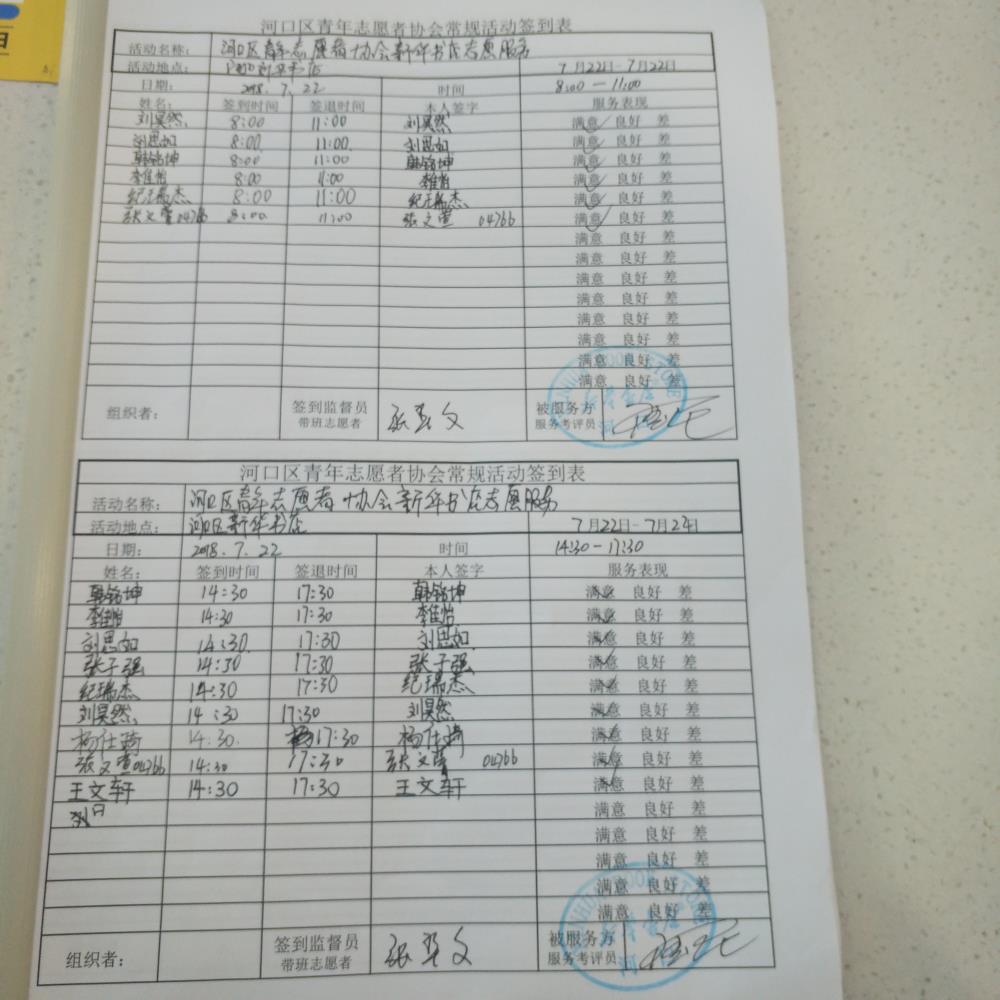 河口区青年志愿者协会常规活动签到表
活动名称: 河口区青年志愿者协会新华书店志愿服务
活动地点: 新华书店 7月22日-7月22日
日期: 2018.7.22 时间 8:00-11:00
姓名: 签到时间 签退时间 本人签字 服务表现
刘昊然 8:00 11:00 刘昊然 满意 良好 差
刘思如 8:00 11:00 刘思如 满意 良好 差
韩铭坤 8:00 11:00 韩铭坤 满意 良好 差
李佳怡 8:00 11:00 李佳怡 满意 良好 差
纪瑞杰 8:00 11:00 纪瑞杰 满意 良好 差
张文萱 04766 8:00 11:00 张文萱 04766 满意 良好 差
满意 良好 差
满意 良好 差
满意 良好 差
满意 良好 差
满意 良好 差
满意 良好 差
满意 良好 差
满意 良好 差
组织者: 签到监督员 带班志愿者 被服务方 服务考评员
河口区青年志愿者协会常规活动签到表
活动名称: 河口区青年志愿者协会新华书店志愿服务
活动地点: 河口区新华书店 7月22日-7月24日
日期: 2018.7.22 时间 14:30-17:30
姓名: 签到时间 签退时间 本人签字 服务表现
韩铭坤 14:30 17:30 韩铭坤 满意 良好 差
李佳怡 14:30 17:30 李佳怡 满意 良好 差
刘思如 14:30 17:30 刘思如 满意 良好 差
张子强 14:30 17:30 张子强 满意 良好 差
纪瑞杰 14:30 17:30 纪瑞杰 满意 良好 差
刘昊然 14:30 17:30 刘昊然 满意 良好 差
杨仕琦 14:30 17:30 杨仕琦 满意 良好 差
张文萱 04766 14:30 17:30 张文萱 04766 满意 良好 差
王文轩 14:30 17:30 王文轩 满意 良好 差
刘日 满意 良好 差
满意 良好 差
满意 良好 差
满意 良好 差
满意 良好 差
组织者: 签到监督员 带班志愿者 被服务方 服务考评员